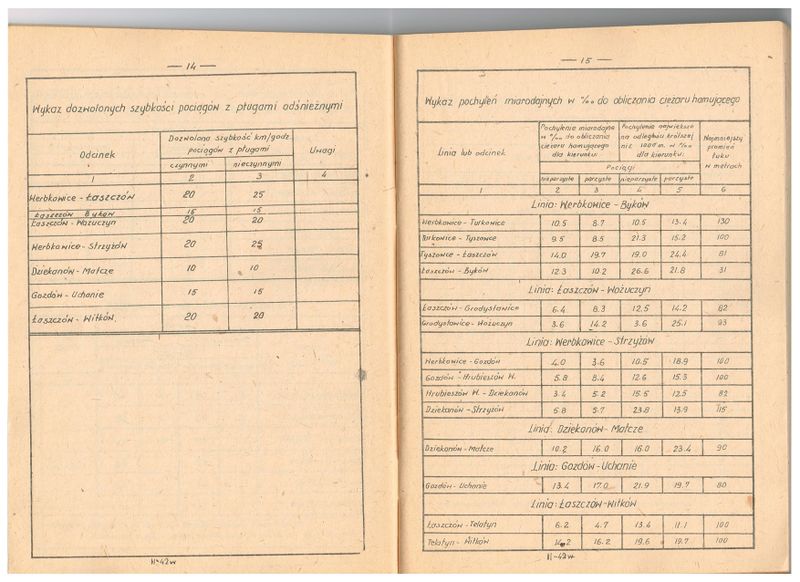 — 14 —
Wykaz dozwolonych szybkości pociągów z pługami odśnieżnymi
Odcinek
Dozwolona szybkość km/godz.
pociągów z pługami
czynnymi
nieczynnymi
Uwagi
1 2 3 4
Werbkowice - Łaszczów 20 25
Łaszczów Byków 15 15
Łaszczów - Wożuczyn 20 20
Werbkowice - Strzyżów 20 25
Dziekanów - Matcze 10 10
Gozdów - Uchanie 15 15
Łaszczów - Witków 20 20
H-42w
— 15 —
Wykaz pochyleń miarodajnych w ‰ do obliczania ciężaru hamującego
Linia lub odcinek
Pochylenie miarodajne
w ‰ do obliczania
ciężaru hamującego
dla kierunku:
Pochylenie największe
na odległości krótszej
niż 1000 m. w ‰
dla kierunku:
Najmniejszy
promień
łuku
w metrach
Pociągi
nieparzyste parzyste nieparzyste parzyste
1 2 3 4 5 6
Linia: Werbkowice - Byków
Werbkowice - Turkowice 10.5 8.7 10.5 13.4 130
Turkowice - Tyszowce 9.5 8.5 21.3 15.2 100
Tyszowce - Łaszczów 14.0 19.7 19.0 24.4 81
Łaszczów - Byków 12.3 10.2 26.6 21.8 31
Linia: Łaszczów - Wożuczyn
Łaszczów - Grodysławice 6.4 8.3 12.5 14.2 82
Grodysławice - Wożuczyn 3.6 14.2 3.6 25.1 93
Linia: Werbkowice - Strzyżów
Werbkowice - Gozdów 4.0 3.6 10.5 18.9 100
Gozdów - Hrubieszów W. 5.8 8.4 12.6 15.3 100
Hrubieszów W. - Dziekanów 3.4 5.2 15.5 12.5 82
Dziekanów - Strzyżów 6.8 5.7 23.8 13.9 115
Linia: Dziekanów - Matcze
Dziekanów - Matcze 10.2 16.0 16.0 23.4 90
Linia: Gozdów - Uchanie
Gozdów - Uchanie 13.4 17.0 21.9 19.7 80
Linia: Łaszczów - Witków
Łaszczów - Telatyn 6.2 4.7 13.4 11.1 100
Telatyn - Witków 14.2 16.2 19.6 19.7 100
H-42w